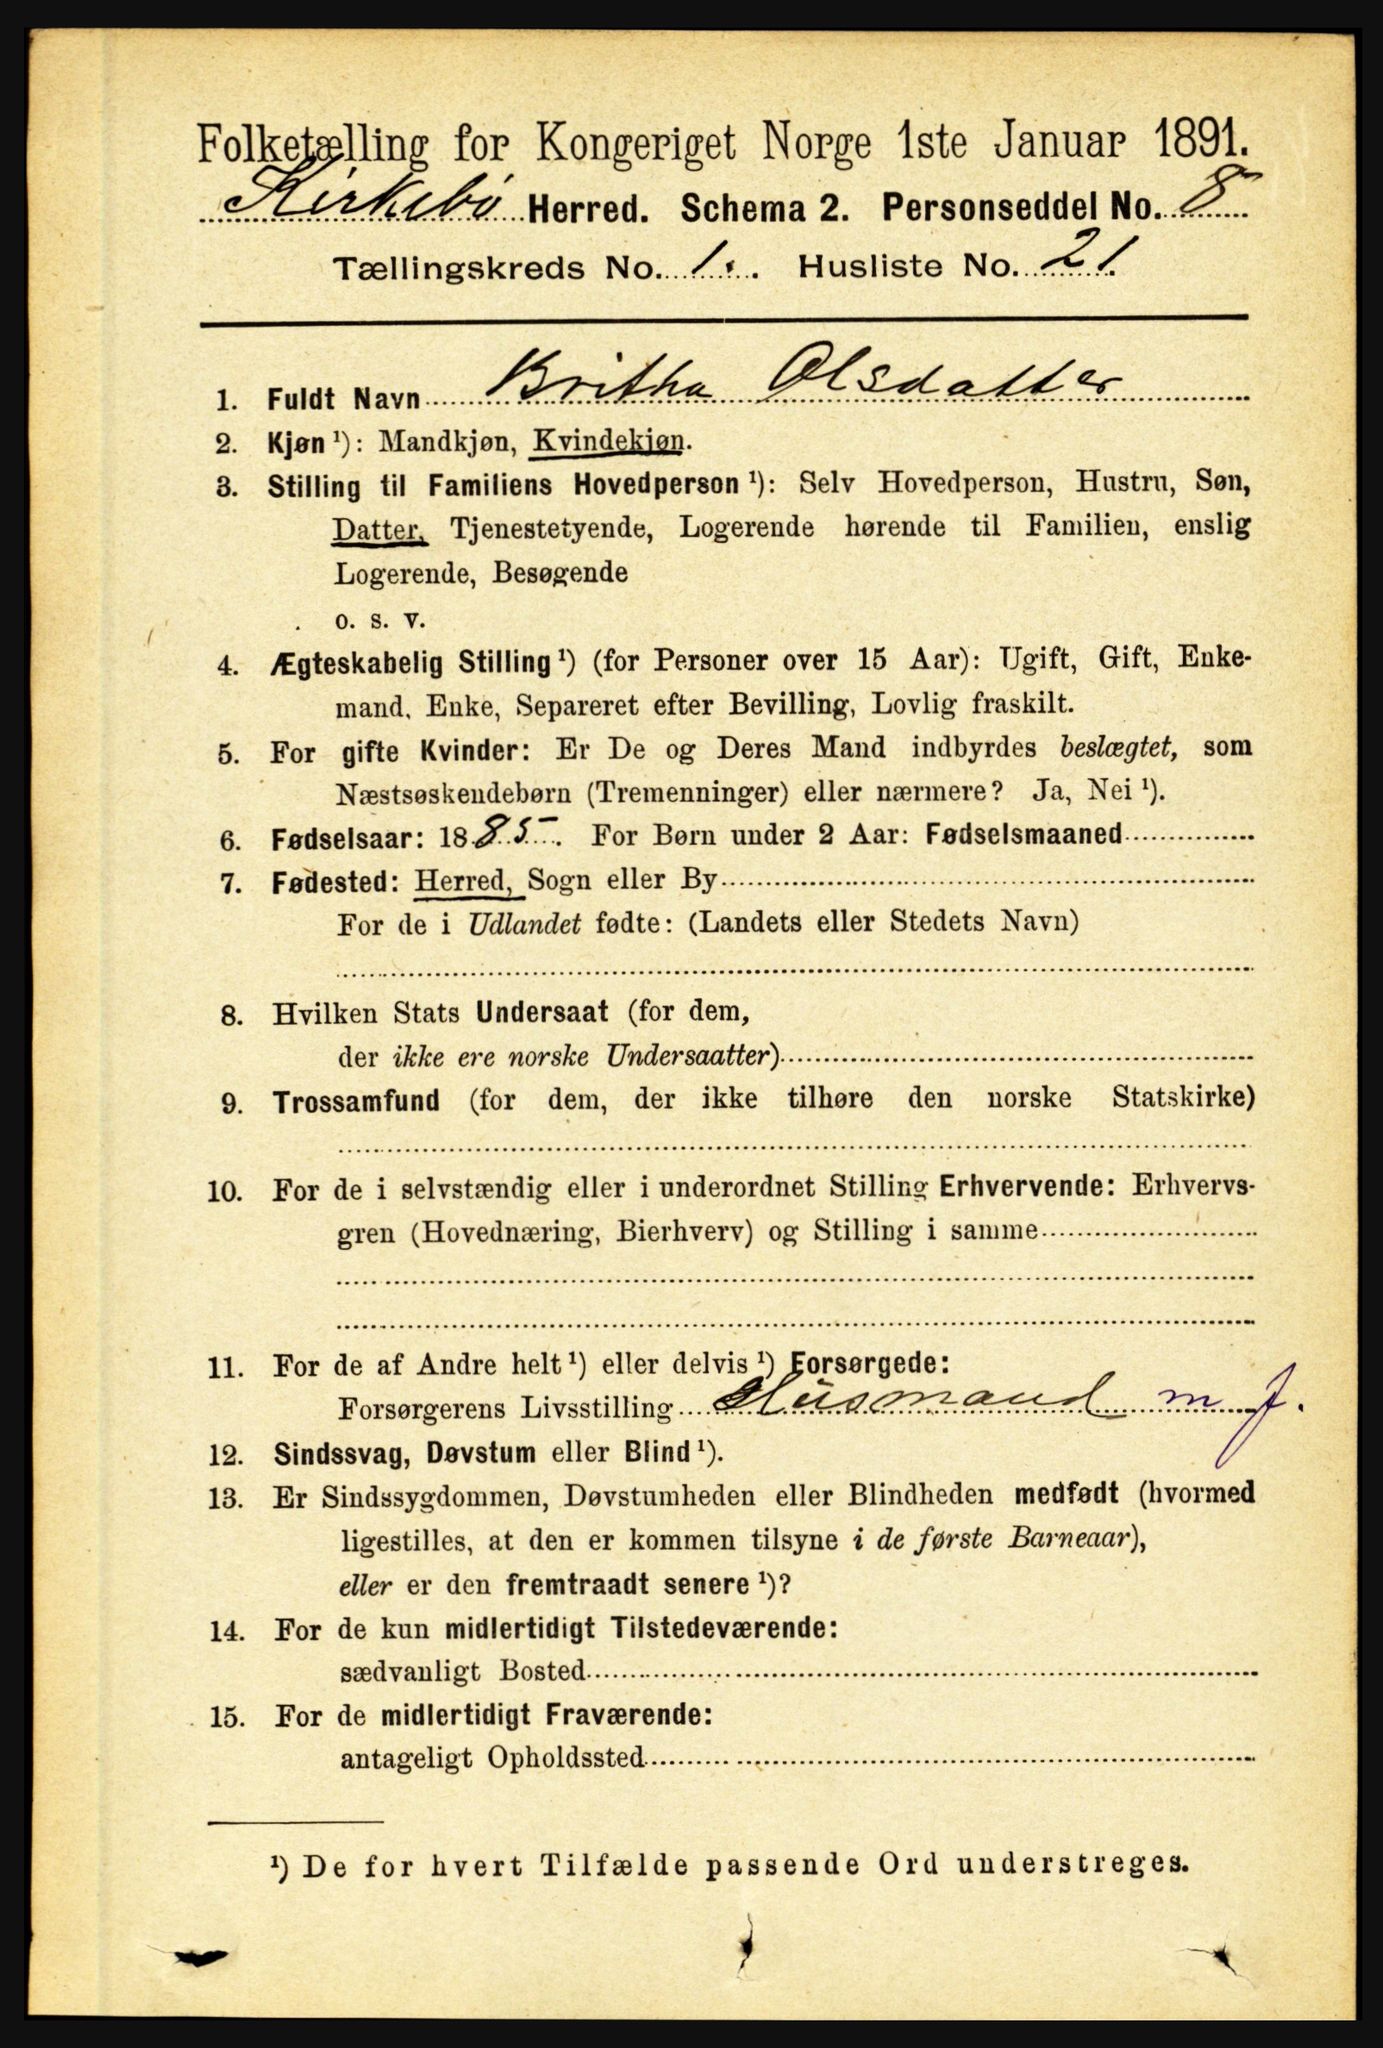 Folketælling for Kongeriget Norge 1ste Januar 1891.
Kirkebø Herred. Schema 2. Personseddel No. 8
Tællingskreds No. 1. Husliste No. 21.
1. Fuldt Navn Britha Olsdatter
2. Kjøn ¹): Mandkjøn, Kvindekjøn.
3. Stilling til Familiens Hovedperson ¹): Selv Hovedperson, Hustru, Søn,
Datter, Tjenestetyende, Logerende hørende til Familien, enslig
Logerende, Besøgende
o. s. v.
4. Ægteskabelig Stilling ¹) (for Personer over 15 Aar): Ugift, Gift, Enke-
mand, Enke, Separeret efter Bevilling, Lovlig fraskilt.
5. For gifte Kvinder: Er De og Deres Mand indbyrdes beslægtet, som
Næstsøskendebørn (Tremenninger) eller nærmere? Ja, Nei ¹).
6. Fødselsaar: 1885. For Børn under 2 Aar: Fødselsmaaned
7. Fødested: Herred, Sogn eller By
For de i Udlandet fødte: (Landets eller Stedets Navn)
8. Hvilken Stats Undersaat (for dem,
der ikke ere norske Undersaatter)
9. Trossamfund (for dem, der ikke tilhøre den norske Statskirke)
10. For de i selvstændig eller i underordnet Stilling Erhvervende: Erhvervs-
gren (Hovednæring, Bierhverv) og Stilling i samme
11. For de af Andre helt ¹) eller delvis ¹) Forsørgede:
Forsørgerens Livsstilling Husmand m J.
12. Sindssvag, Døvstum eller Blind ¹).
13. Er Sindssygdommen, Døvstumheden eller Blindheden medfødt (hvormed
ligestilles, at den er kommen tilsyne i de første Barneaar),
eller er den fremtraadt senere ¹)?
14. For de kun midlertidigt Tilstedeværende:
sædvanligt Bosted
15. For de midlertidigt Fraværende:
antageligt Opholdssted
¹) De for hvert Tilfælde passende Ord understreges.